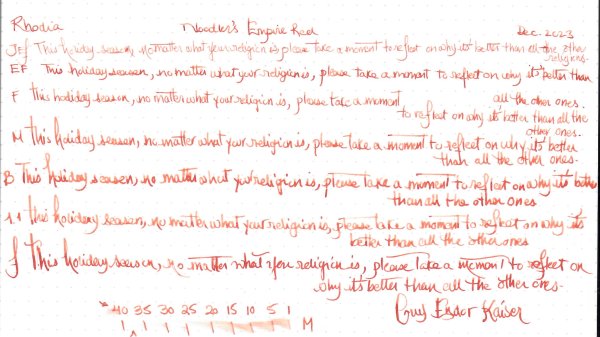 Rhodia Noodler's Empire Red Dec. 2023
JEf This holiday season, no matter what your religion is, please take a moment to reflect on why it's better than all the other
religions.
EF This holiday season, no matter what your religion is, please take a moment to reflect on why it's better than
all the other ones.
F This holiday season, no matter what your religion is, please take a moment
to reflect on why it's better than all the
other ones.
M This holiday season, no matter what your religion is, please take a moment to reflect on why it's better
than all the other ones.
B This holiday season, no matter what your religion is, please take a moment to reflect on why it's better
than all the other ones
1.1 This holiday season, no matter what your religion is, please take a moment to reflect on why it's
better than all the other ones
f This holiday season, no matter what your religion is, please take a moment to reflect on
why it's better than all the other ones.
Guy Kaiser
40 35 30 25 20 15 10 5 1 M